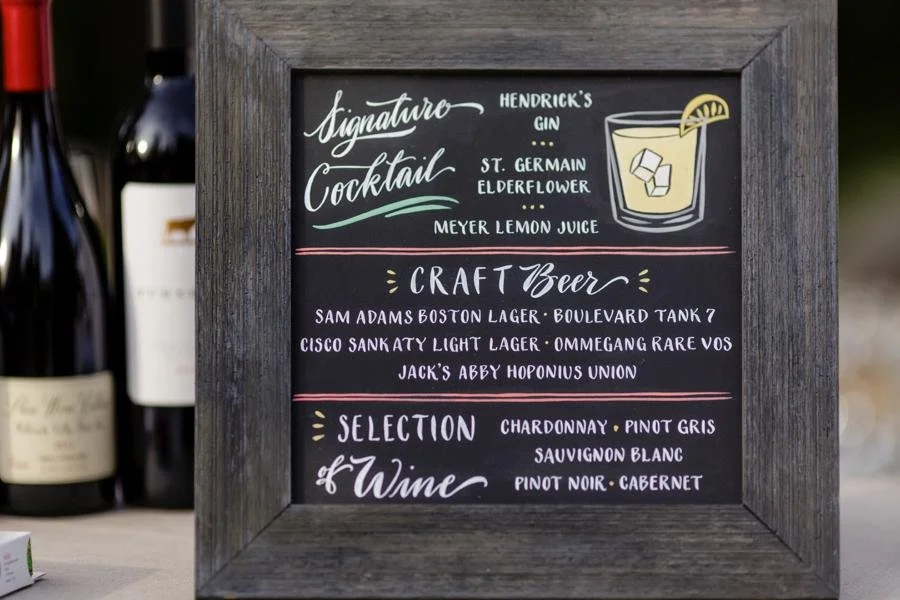 Signature
Cocktail
HENDRICK'S
GIN
ST. GERMAIN
ELDERFLOWER
MEYER LEMON JUICE
CRAFT Beer
SAM ADAMS BOSTON LAGER · BOULEVARD TANK 7
CISCO SANKATY LIGHT LAGER · OMMEGANG RARE VOS
JACK'S ABBY HOPONIUS UNION
SELECTION
of Wine
CHARDONNAY · PINOT GRIS
SAUVIGNON BLANC
PINOT NOIR · CABERNET